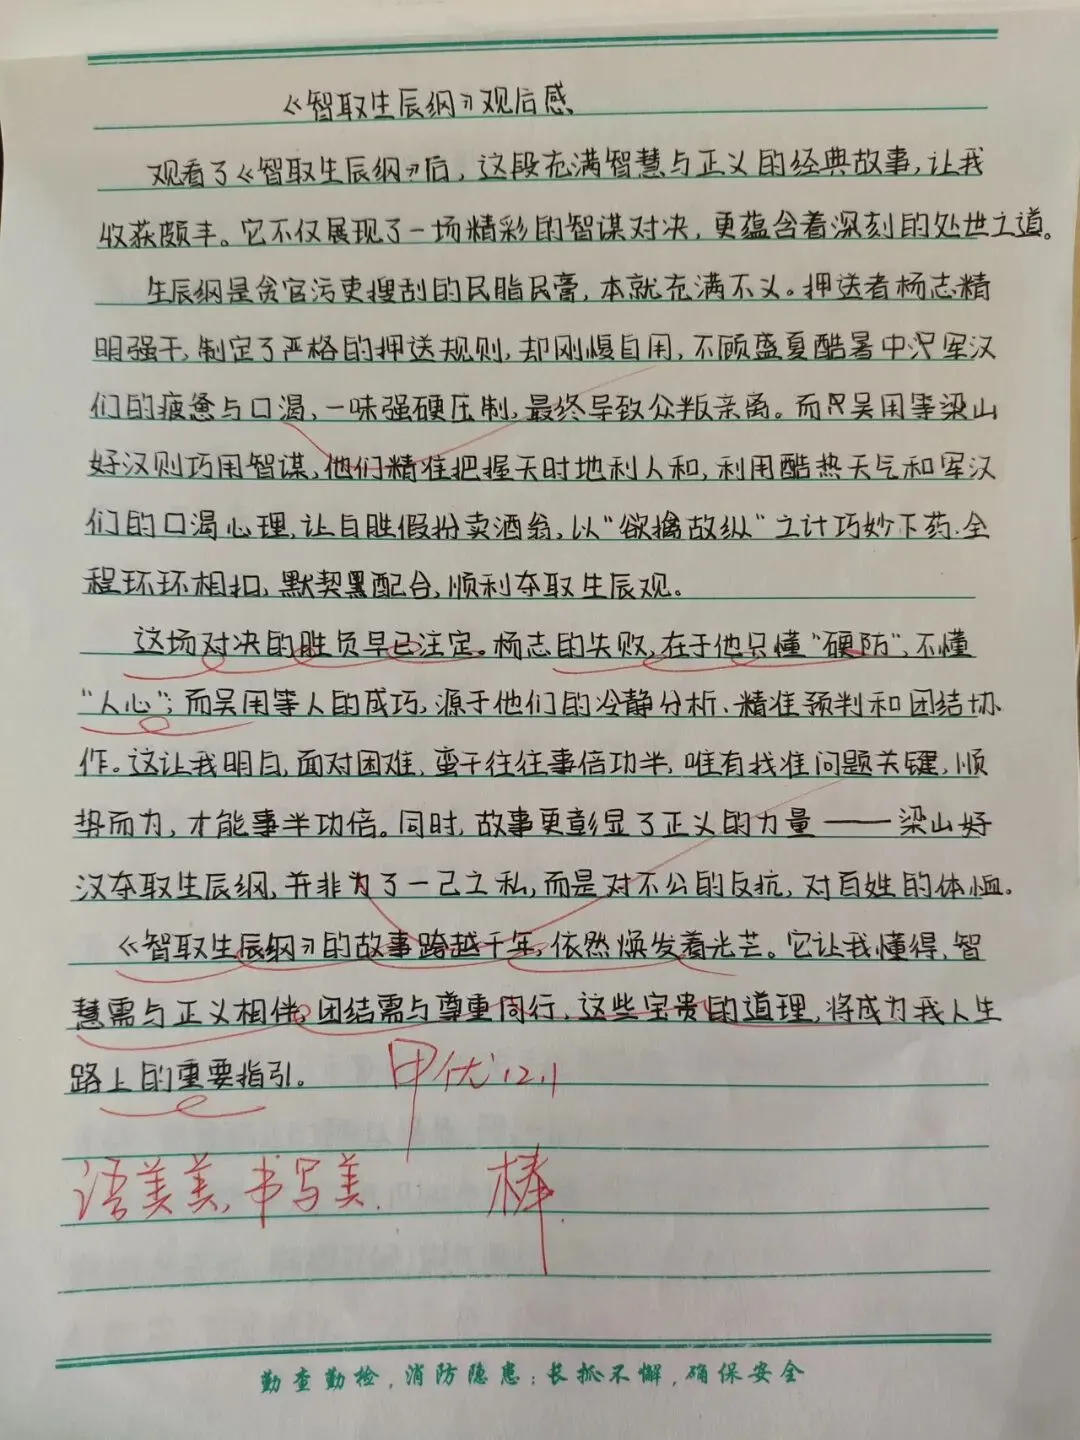 《智取生辰纲》观后感
观看了《智取生辰纲》后，这段充满智慧与正义的经典故事，让我
收获颇丰。它不仅展现了一场精彩的智谋对决，更蕴含着深刻的处世之道。
生辰纲是贪官污吏搜刮的民脂民膏，本就充满不义。押送者杨志精
明强干，制定了严格的押送规则，却刚愎自用，不顾盛夏酷暑中军汉
们的疲惫与口渴，一味强硬压制，最终导致众叛亲离。而吴用等梁山
好汉则巧用智谋，他们精准把握天时地利人和，利用酷热天气和军汉
们的口渴心理，让白胜假扮卖酒翁，以“欲擒故纵”之计巧妙下药.全
程环环相扣，默契黑配合，顺利夺取生辰观。
这场对决的胜负早已注定。杨志的失败，在于他只懂“硬防”，不懂
“人心”；而吴用等人的成巧，源于他们的冷静分析、精准预判和团结协
作。这让我明白，面对困难，蛮干往往事倍功半，唯有找准问题关键，顺
势而为，才能事半功倍。同时，故事更彰显了正义的力量——梁山好
汉夺取生辰纲，并非为了一己之私，而是对不公的反抗，对百姓的体恤。
《智取生辰纲》的故事跨越千年，依然焕发着光芒。它让我懂得，智
慧需与正义相伴，团结需与尊重同行，这些宝贵的道理，将成为我人生
路上的重要指引。
甲优 12.1
语美美，书写美.
棒.
勤查勤检，消防隐患；长抓不懈，确保安全